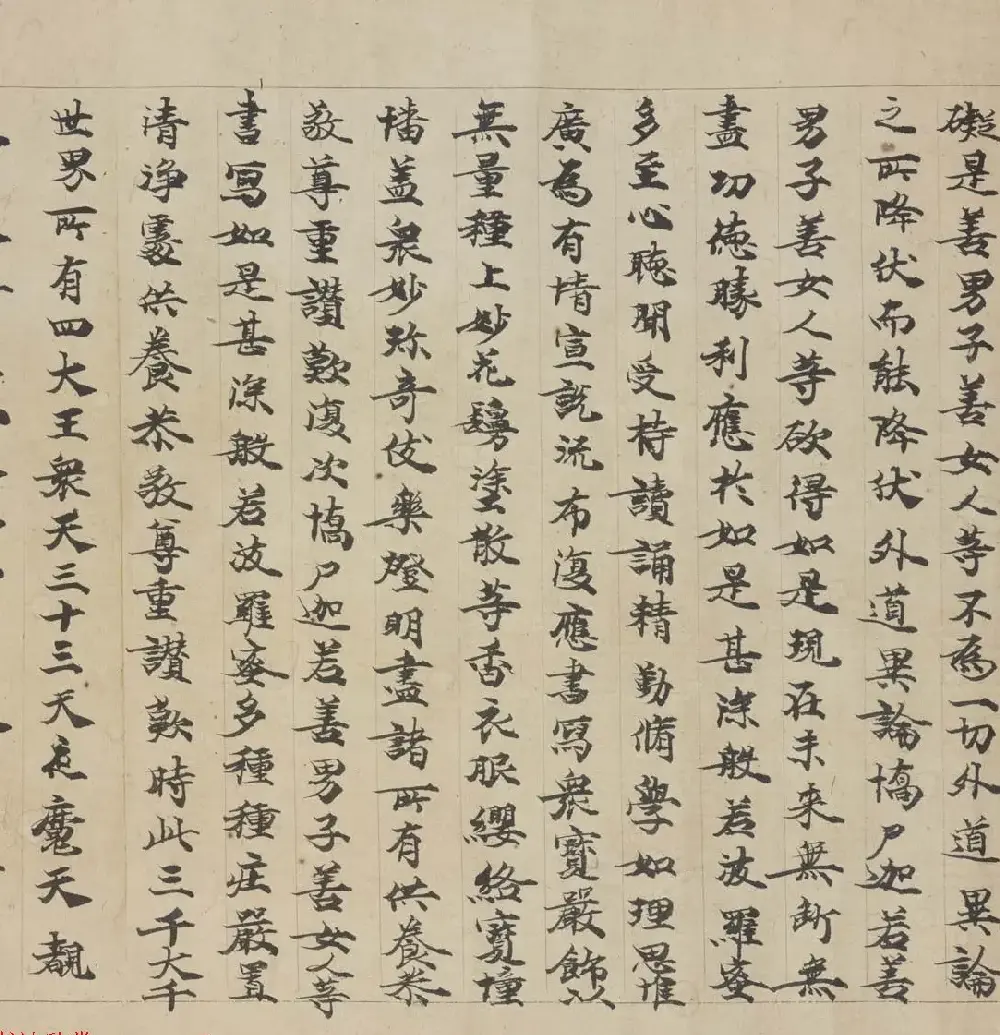 礙是善男子善女人等不為一切外道異論
之所降伏而能降伏外道異論憍尸迦若善
男子善女人等欲得如是現在未來無斷無
盡功德勝利應於如是甚深般若波羅蜜
多至心聽聞受持讀誦精勤脩學如理思惟
廣為有情宣說流布復應書寫眾寶嚴飾以
無量種上妙花鬘塗散等香衣服纓絡寶幢
幡盖眾妙珎奇伎樂燈明盡諸所有供養恭
敬尊重讚歎復次憍尸迦若善男子善女人等
書寫如是甚深般若波羅蜜多種種莊嚴置
清淨處供養恭敬尊重讚歎時此三千大千
世界所有四大王眾天三十三天夜魔天覩